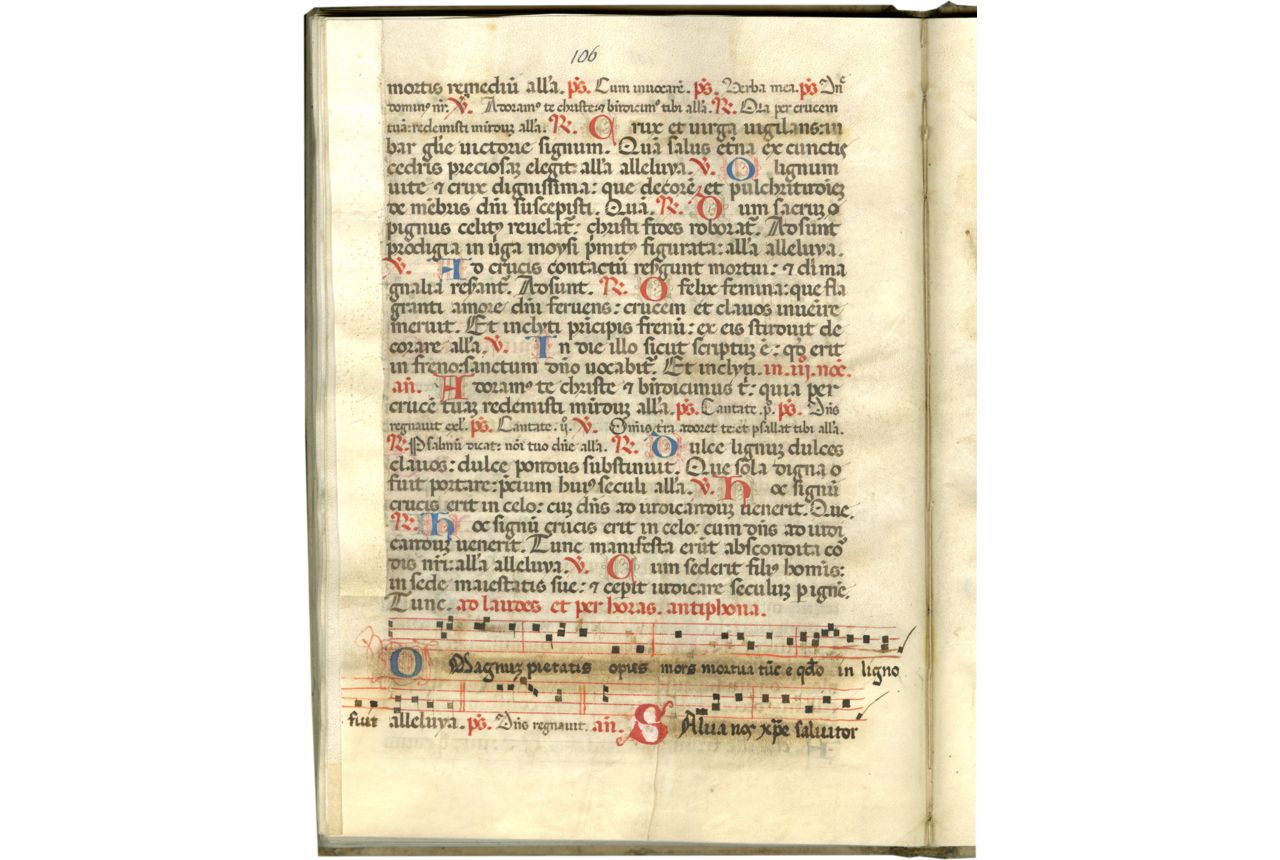 106
mortis remediū all'a. ps. Cum inuocarē. ps. Verba mea. ps Dn̄e
dominꝰ nr̄. V. Adoramꝰ te christe: ⁊ bn̄dicimꝰ tibi all'a. R. Qia per crucem
tuā: redemisti mūduꝫ all'a. R. Crux et uirga uigilans: iu
bar glīe uictorie signum. Quā salus etn̄a ex cunctis
cedris preciosaꝫ elegit all'a alleluya. V. O lignum
uite ⁊ crux dignissima: que decorē et pulchritudieꝫ
de mēbris dn̄i suscepisti. Quā. R. Dum sacruꝫ
pignus celitꝰ reuelat᷑: christi fides roborat᷑. Adsunt
prodigia in ūga moysi p̄mitꝰ figurata: all'a alleluya.
V. Ad crucis contactū resᷣgunt mortui: ⁊ di ma
gnalia resᷣant᷑. Adsunt. R. O felix femina: que fla
granti amore dn̄i feruens: crucem et clauos inuēire
meruit. Et inclyti prīcipis frenū: ex eis studuit de
corare all'a. V. In die illo sicut scriptuꝫ ē: qd erit
in freno: sanctum dn̄o uocabit᷑. Et inclyti. in. iij. noc̄.
an̄. Adoramꝰ te christe ⁊ bn̄dicimus t᷑: quia per
crucē tuaꝫ redemisti mūduꝫ all'a. ps. Cantate. p̊. ps. Dn̄s
regnauit exl᷑. ps. Cantate. ij̊. V. Omīs tr̄a adoret te: et psallat tibi all'a.
R. Psalmū dicat: noī tuo dn̄e all'a. R. Dulce lignuꝫ dulces
clauos: dulce pondus substinuit. Que sola digna
fuit portare: p̄cium huiꝰ seculi all'a. V. Hoc signū
crucis erit in celo: cuꝫ dn̄s ad iudicanduꝫ uenerit. Que.
R. Hoc signū crucis erit in celo: cum dn̄s ad iudi
canduꝫ uenerit. Tunc manifesta erūt abscondita cor
dis nr̄i: all'a alleluya. V. Cum sederit filiꝰ homīs:
in sede maiestatis sue: ⁊ cepit iudicare seculuꝫ p ignē.
Tunc. ad laudes et per horas. antiphona.
O Magnuꝫ pietatis opus mors mortua tūc e qdo in ligno
fuit alleluya. ps. Dn̄s regnauit. an̄. SAlua nos xp̄e saluator